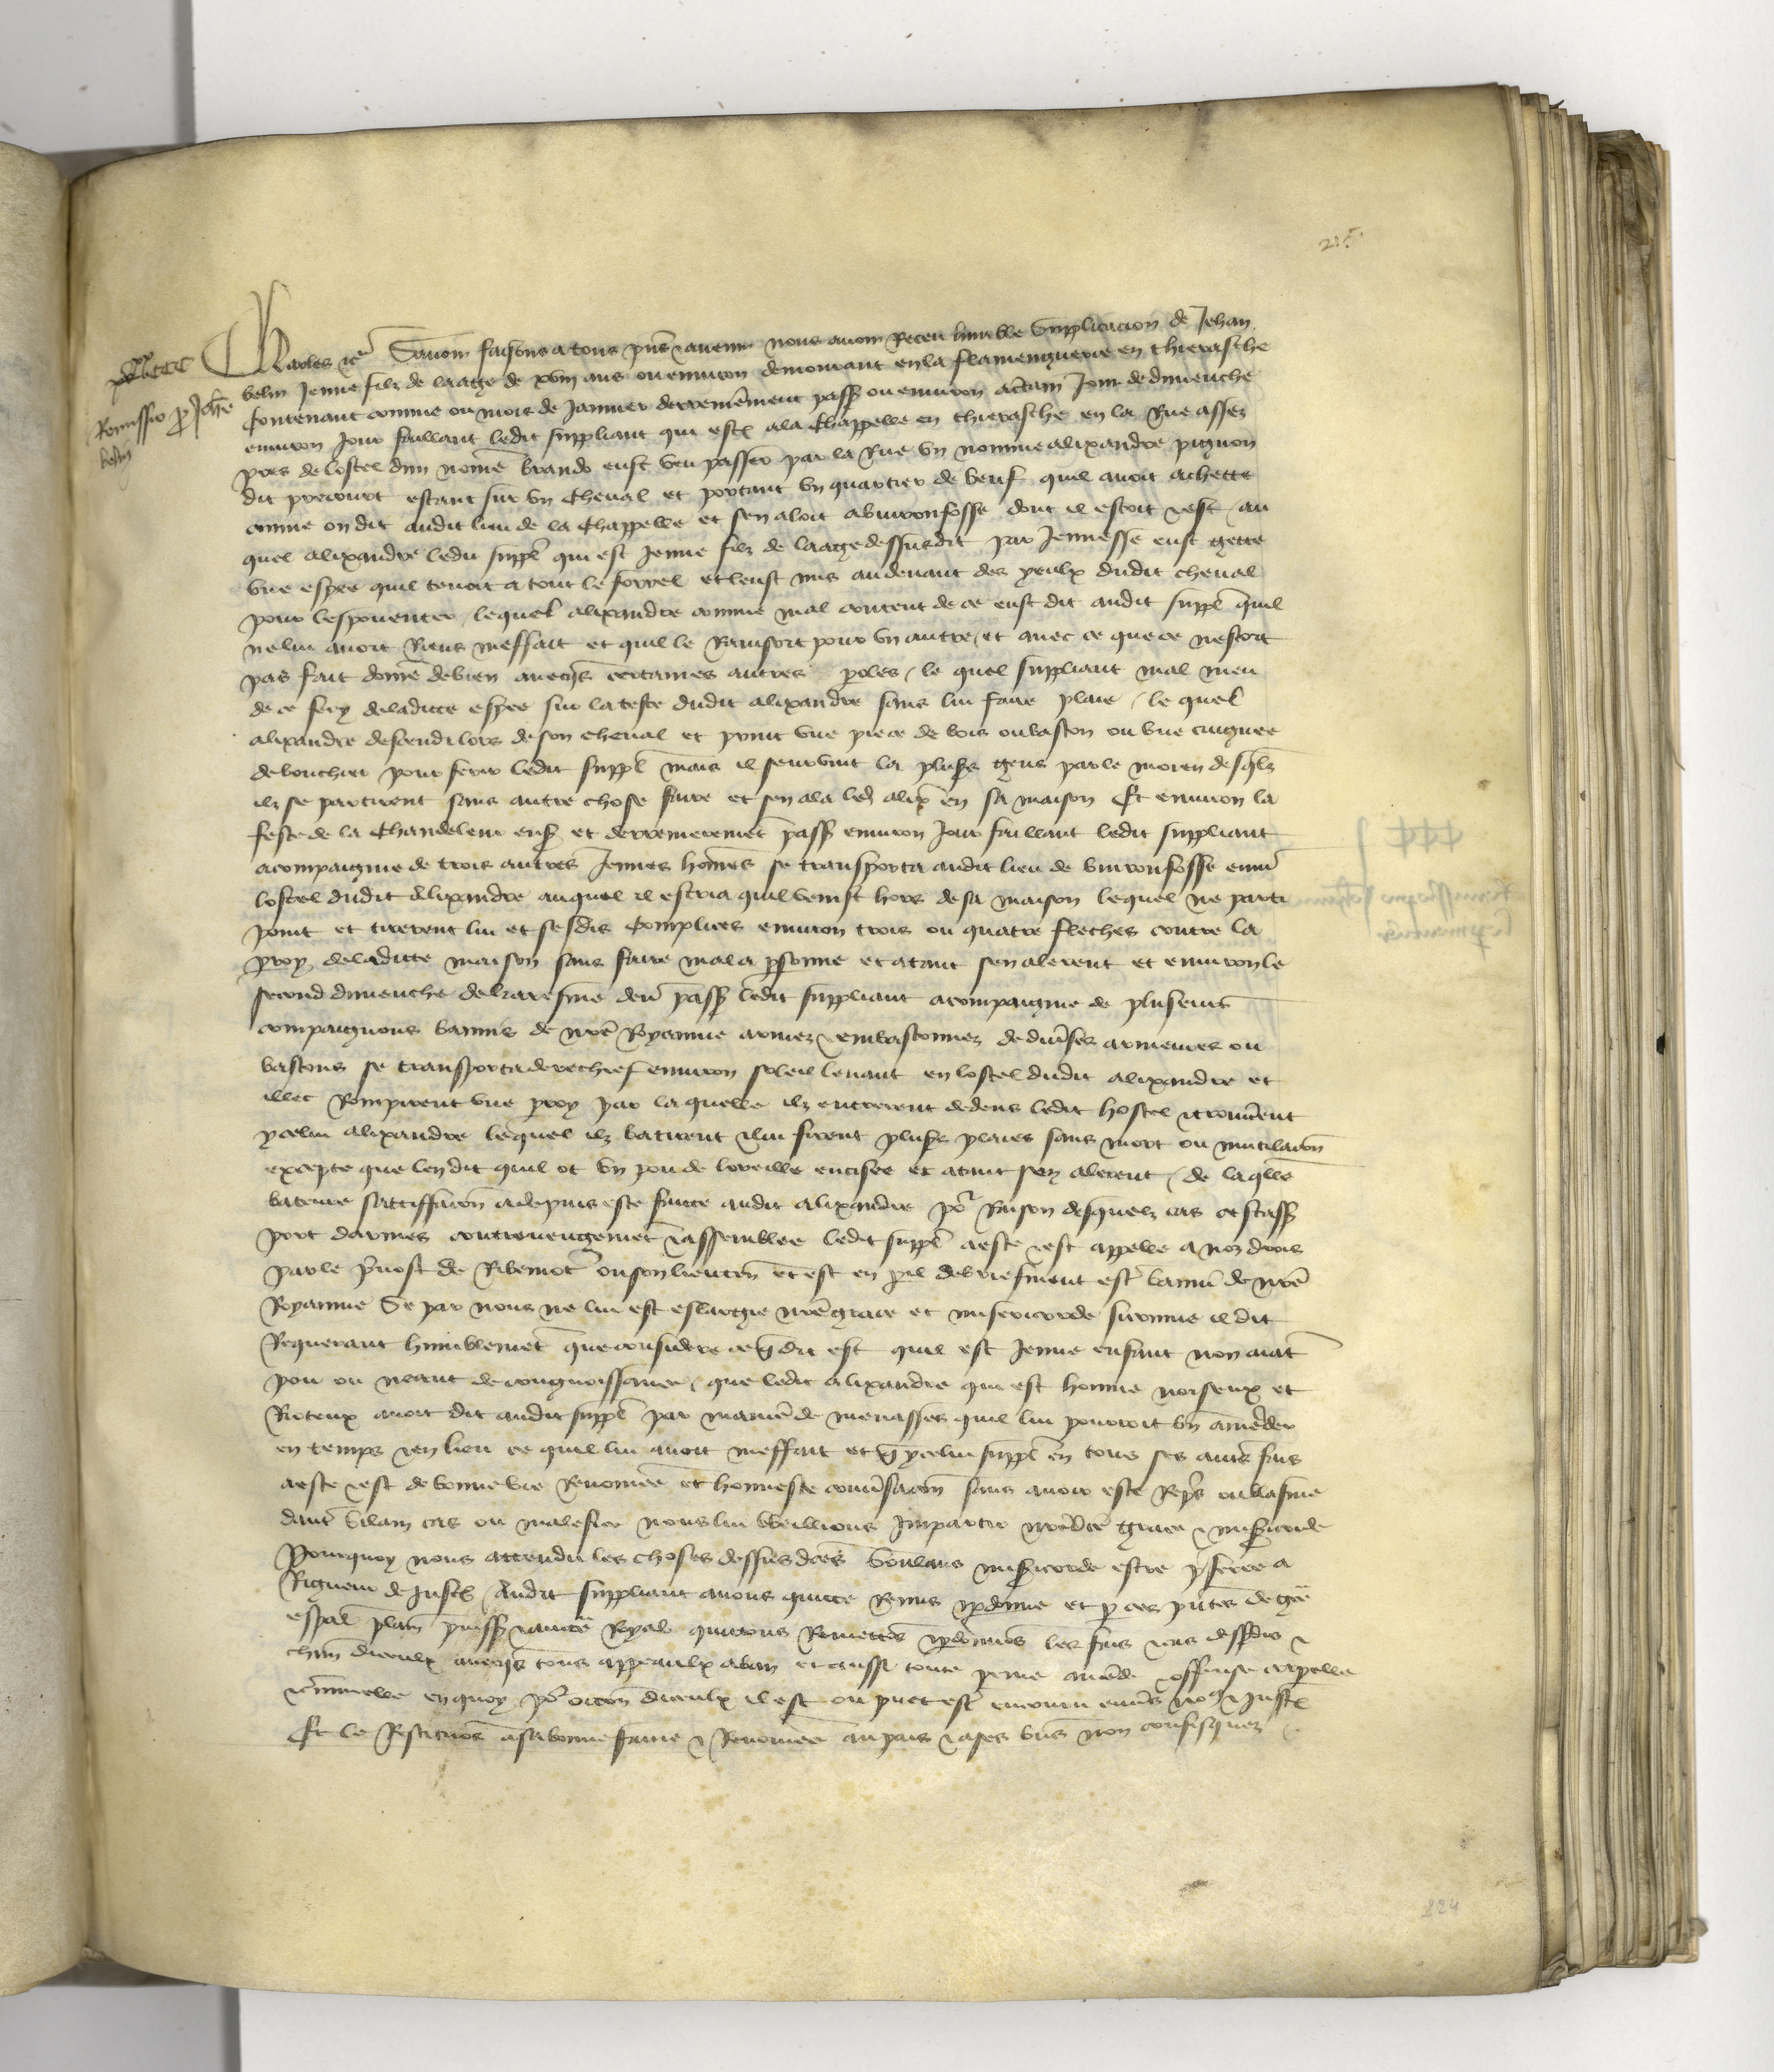 215
Charles etc Savoir faisons a tous pns et avenir nous avoir Receu humble supplicacion de Jehan
Remissio p Johe
belin
belin Jeune filz de laage de xviii ans ou environ demourant en la flamenguerie en thierasche
Contenant comme ou mois de Janvier derrenierement passe ou environ a certain Jour de dimenche
environ Jour faillant ledit suppliant qui estoit a la Chappelle en thierasche en la Rue assez
pres de lostel dun nome brando eust veu passer par la Rue un nomme alixandre pignon
dit precourt estant sur un cheval et portant un quartier de beuf quil avoit achette
comme on dit audit lieu de la Chappelle et sen aloit a buironfosse dont il estoit et est / au
quel alixandre ledit suppl qui est Jeune filz de laage dessusdit par Jeunesse eust gette
une espee quil tenoit a tout le forrel et leust mis au devant des yeulx dudit cheval
pour lespouenter / lequel alixandre comme mal content de ce eust dit audit suppl quil
ne lui avoit Riens meffait et quil le Ravisoit pour un autre / et avec ce que ce nestoit
pas fait dome de bien avecqs certaines autres poles / le quel suppliant mal meu
de ce fery de ladicte espee sur la teste dudit alixandre sans lui faire plaie / le quel
alixandre descendi lors de son cheval et print une piece de bois ou baston ou une cuignee
de bouchier pour ferir ledit suppl mais il seurvint la plus gens par le moien desqlz
ilz se partirent sans autre chose faire et sen ala led alix en sa maison Et environ la
feste de la Chandeleur ens et derrenieremet pass environ Jour faillant ledit suppliant
acompaignie de trois autres Jeunes homes se transporta audit lieu de buironfosse env
lostel dudit Alixandre auquel il escria quil venist hors de sa maison lequel ne parti
point et tirerent lui et sesdis Complices environ trois ou quatre fleches contre la
paroy de ladicte maison sans faire mal a psonne et atant sen alerent et environ le
second dimenche de karesme der pass ledit suppliant acompaignie de pluseurs
compaignons bannis de nre Royaume armez et embastonnez de diverses armeures ou
bastons se transporta derechief environ soleil levant en lostel dudit alixandre et
illec Rompirent une paroy par la quelle ilz entrerent dedens ledit hostel et trouverent
ycelui alixandre lequel ilz batirent et lui firent plus plaies sans mort ou mutilacion
excepte que len dit quil ot un pou de loreille encisee et atant sen alerent / de laqlle
bateure sattiffacion a depuis este faicte audit alixandre por Raison desquelz cas
port darmes contrevengemet et assemblee ledit suppl a este et est appelle a noz drois
par le prevost de Ribemot ou son lieuten et est en pil de briefment estre banni de nre
Royaume Se par nous ne lui est eslargie nre grace et misericorde sicomme il dit
Requerant humblemet que considere ce q dit est quil est Jeune enfant non aiat
pou ou neant de congnoissance / que ledit alixandre qui est homme noiseux et
Rioteux avoit dit audit suppl par maniere de menasses quil lui pourroit bn amender
en temps et en lieu ce quil lui avoit meffait et q ycelui suppl en tous ses autres fais
a este et est de bonne vie Renomee et honneste conversacion sans avoir este Repris ou blasme
daut vilain cas ou malefice nous lui veillions Impartir nred grace et misericorde
Pourquoy nous attendu les choses dessus dces voulans misericorde estre preferee a
Rigueur de Justice Audit suppliant avons quicte Remis pardonne et p ces pntes de gre
espal plain puiss et auctte Royal quictons Remettos pardonnos les fais et cas dessusdis et
chun diceulx avecqs tous appeaulx a ban et aussi toute peine amende et offense corpelle
et criminelle en quoy por occon diceulx il est ou puet est encouru envers nos et Justice
Et le Restituos a sa bonne fame et Renomee au pais et a ses biens non confisquez
224